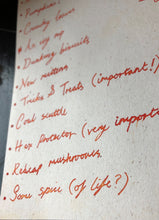 • Pumpkins!
• Country
• An
• Dunking biscuits
• New mittens
• Tricks & Treats (important!)
• Coal scuttle
• Hex Protector (very importa
• Kebap mushrooms
• Some spice (of life?)